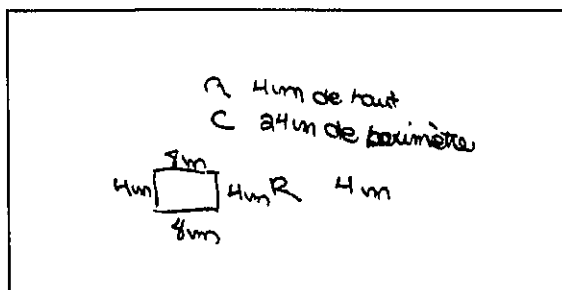 R 4m de haut
C 24m de perimètre
8m
4m 4m R 4m
8m